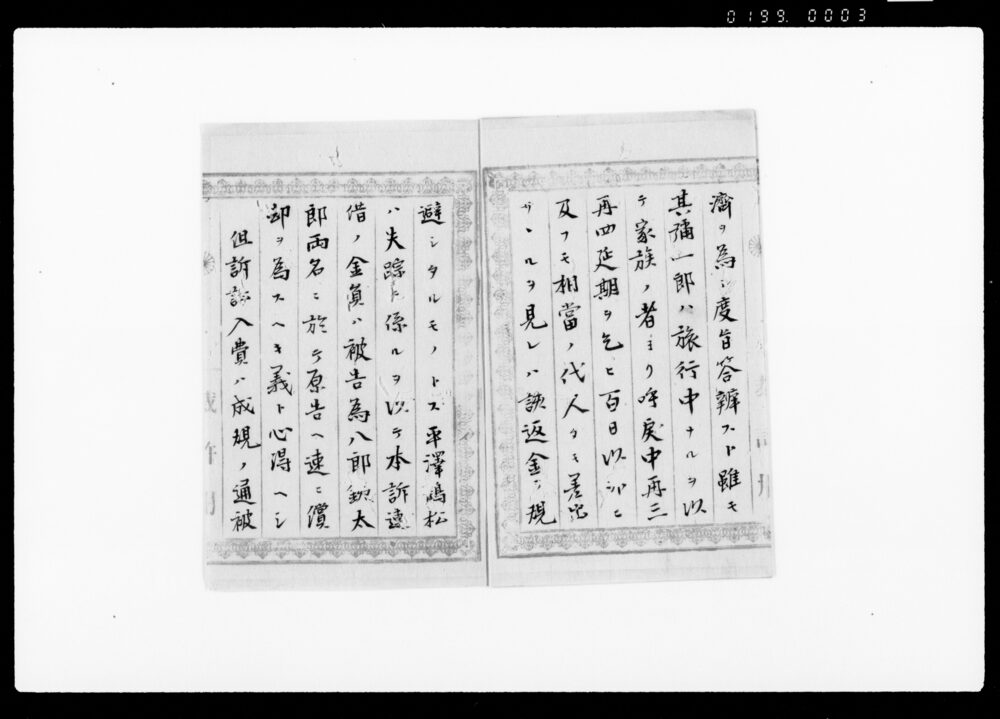 0199. 0003
濟ヲ為シ度旨答辨スト雖モ
其彌一郎ハ旅行中ナルヲ以
テ家族ノ者ヨリ呼戻中再三
再四延期ヲ乞ヒ百日以外ニ
及フモ相當ノ代人タモ差出
サヽルヲ見レハ該返金ヲ規
避シタルモノトス平澤嶋松
ハ失踪ニ係ルヲ以テ本訴連
借ノ金員ハ被告為八郎鋭太
郎両名ニ於テ原告ヘ速ニ償
却ヲ為スヘキ義ト心得ヘシ
但訴訟入費ハ成規ノ通被